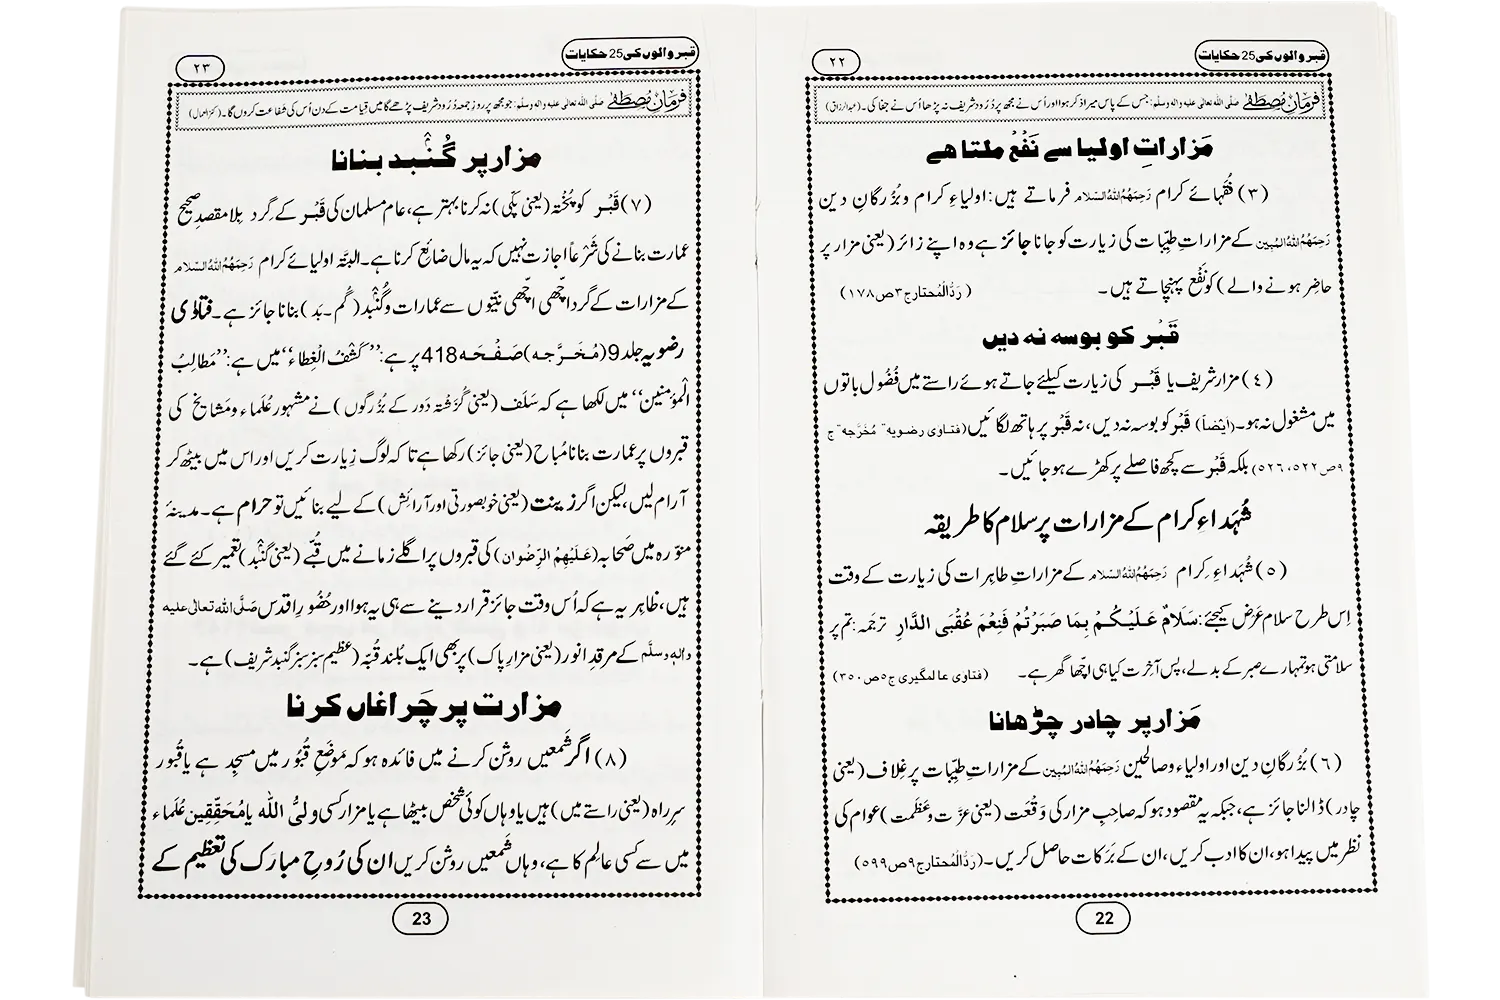 قبر والوں کی 25 حکایات
٢٢
فرمانِ مصطفٰے صلی اللہ تعالیٰ علیہ والہ وسلم: جس کے پاس میرا ذکر ہوا اور اُس نے مجھ پر دُرُود شریف نہ پڑھا اُس نے جفا کی۔ (عبدالرزاق)
مَزاراتِ اولیا سے نَفْع ملتا ہے
(٣) فُقَہائے کرام رَحِمَهُمُ اللهُ السَّلَام فرماتے ہیں: اولیاءِ کرام و بُزُرگانِ دین
رَحِمَهُمُ اللهُ الْمُبِين کے مزاراتِ طیِّبات کی زیارت کو جانا جائز ہے وہ اپنے زائر (یعنی مزار پر
حاضِر ہونے والے) کو نَفْع پہنچاتے ہیں۔ (رَدُّالْمُحتار ج٣ ص١٧٨)
قَبْر کو بوسہ نہ دیں
(٤) مزار شریف یا قَبْر کی زیارت کیلئے جاتے ہوئے راستے میں فُضُول باتوں
میں مشغول نہ ہو۔ (اَیْضاً) قَبْر کو بوسہ نہ دیں، نہ قَبْر پر ہاتھ لگائیں (فتاوی رضویہ مُخَرَّجہ ج
٩ ص ٥٢٢، ٥٢٦) بلکہ قَبْر سے کچھ فاصلے پر کھڑے ہو جائیں۔
شُہَداءِ کرام کے مزارات پر سلام کا طریقہ
(٥) شُہَداءِ کِرام رَحِمَهُمُ اللهُ السَّلَام کے مزاراتِ طاہِرات کی زیارت کے وقت
اِس طرح سلام عَرْض کیجئے: سَلَامٌ عَلَيْكُمْ بِمَا صَبَرْتُمْ فَنِعْمَ عُقْبَى الدَّارِ ترجَمہ: تم پر
سلامتی ہو تمہارے صبر کے بدلے، پس آخرت کیا ہی اچّھا گھر ہے۔ (فتاوی عالمگیری ج٥ ص٣٥٠)
مَزار پر چادر چڑھانا
(٦) بُزُرگانِ دین اور اولیاء و صالحین رَحِمَهُمُ اللهُ الْمُبِين کے مزاراتِ طیِّبات پر غِلاف (یعنی
چادر) ڈالنا جائز ہے، جبکہ یہ مقصود ہو کہ صاحبِ مزار کی وَقْعَت (یعنی عزّت و عَظَمت) عوام کی
نظر میں پیدا ہو، ان کا ادب کریں، ان کے بَرَکات حاصل کریں۔ (رَدُّالْمُحتار ج٩ ص٥٩٩)
22
قبر والوں کی 25 حکایات
٢٣
فرمانِ مصطفٰے صلی اللہ تعالیٰ علیہ والہ وسلم: جو مجھ پر روزِ جمعہ دُرُود شریف پڑھے گا میں قِیامت کے دن اُس کی شفاعت کروں گا۔ (کنز العمال)
مزار پر گُنبد بنانا
(٧) قَبْر کو پُخْتہ (یعنی پکّی) نہ کرنا بہتر ہے، عام مسلمان کی قَبْر کے گِرد بِلا مقصدِ صحیح
عمارت بنانے کی شَرْعاً اجازت نہیں کہ یہ مال ضائع کرنا ہے۔ البتّہ اولیائے کرام رَحِمَهُمُ اللهُ السَّلَام
کے مزارات کے گرد اچّھی اچّھی نیّتوں سے عمارات و گُنبد (گُم۔بَد) بنانا جائز ہے۔ فتاوٰی
رضویہ جلد 9 (مُخَرَّجہ) صَفْحَہ 418 پر ہے: ’’کَشْفُ الْغِطَاء‘‘ میں ہے: ’’مَطَالِبُ
الْمُؤمنین‘‘ میں لکھا ہے کہ سَلَف (یعنی گُزَشْتہ دَور کے بُزُرگوں) نے مشہور عُلَماء و مَشائخ کی
قبروں پر عمارت بنانا مُباح (یعنی جائز) رکھا ہے تاکہ لوگ زِیارت کریں اور اس میں بیٹھ کر
آرام لیں، لیکن اگر زینت (یعنی خوبصورتی اور آرائِش) کے لیے بنائیں تو حرام ہے۔ مدینۂ
منوّرہ میں صَحابہ (عَلَيْهِمُ الرِّضْوَان) کی قبروں پر اگلے زمانے میں قُبّے (یعنی گنبد) تعمیر کئے گئے
ہیں، ظاہِر یہ ہے کہ اُس وقت جائز قرار دینے سے ہی یہ ہوا اور حُضُورِ اقدس صَلَّى اللہ تعالٰی علیہ
والہٖ وسلَّم کے مرقدِ انور (یعنی مزارِ پاک) پر بھی ایک بُلند قُبّہ (عظیم سبز سبز گنبد شریف) ہے۔
مزارت پر چَراغاں کرنا
(٨) اگر شَمعیں روشن کرنے میں فائدہ ہو کہ مَوْضَعِ قُبُور میں مسجِد ہے یا قُبُور
سرِ راہ (یعنی راستے میں) ہیں یا وہاں کوئی شخص بیٹھا ہے یا مزار کسی ولیُّ اللّٰہ یا مُحَقِّقِین عُلَماء
میں سے کسی عالم کا ہے، وہاں شَمعیں روشن کریں ان کی رُوحِ مبارَک کی تعظیم کے
23